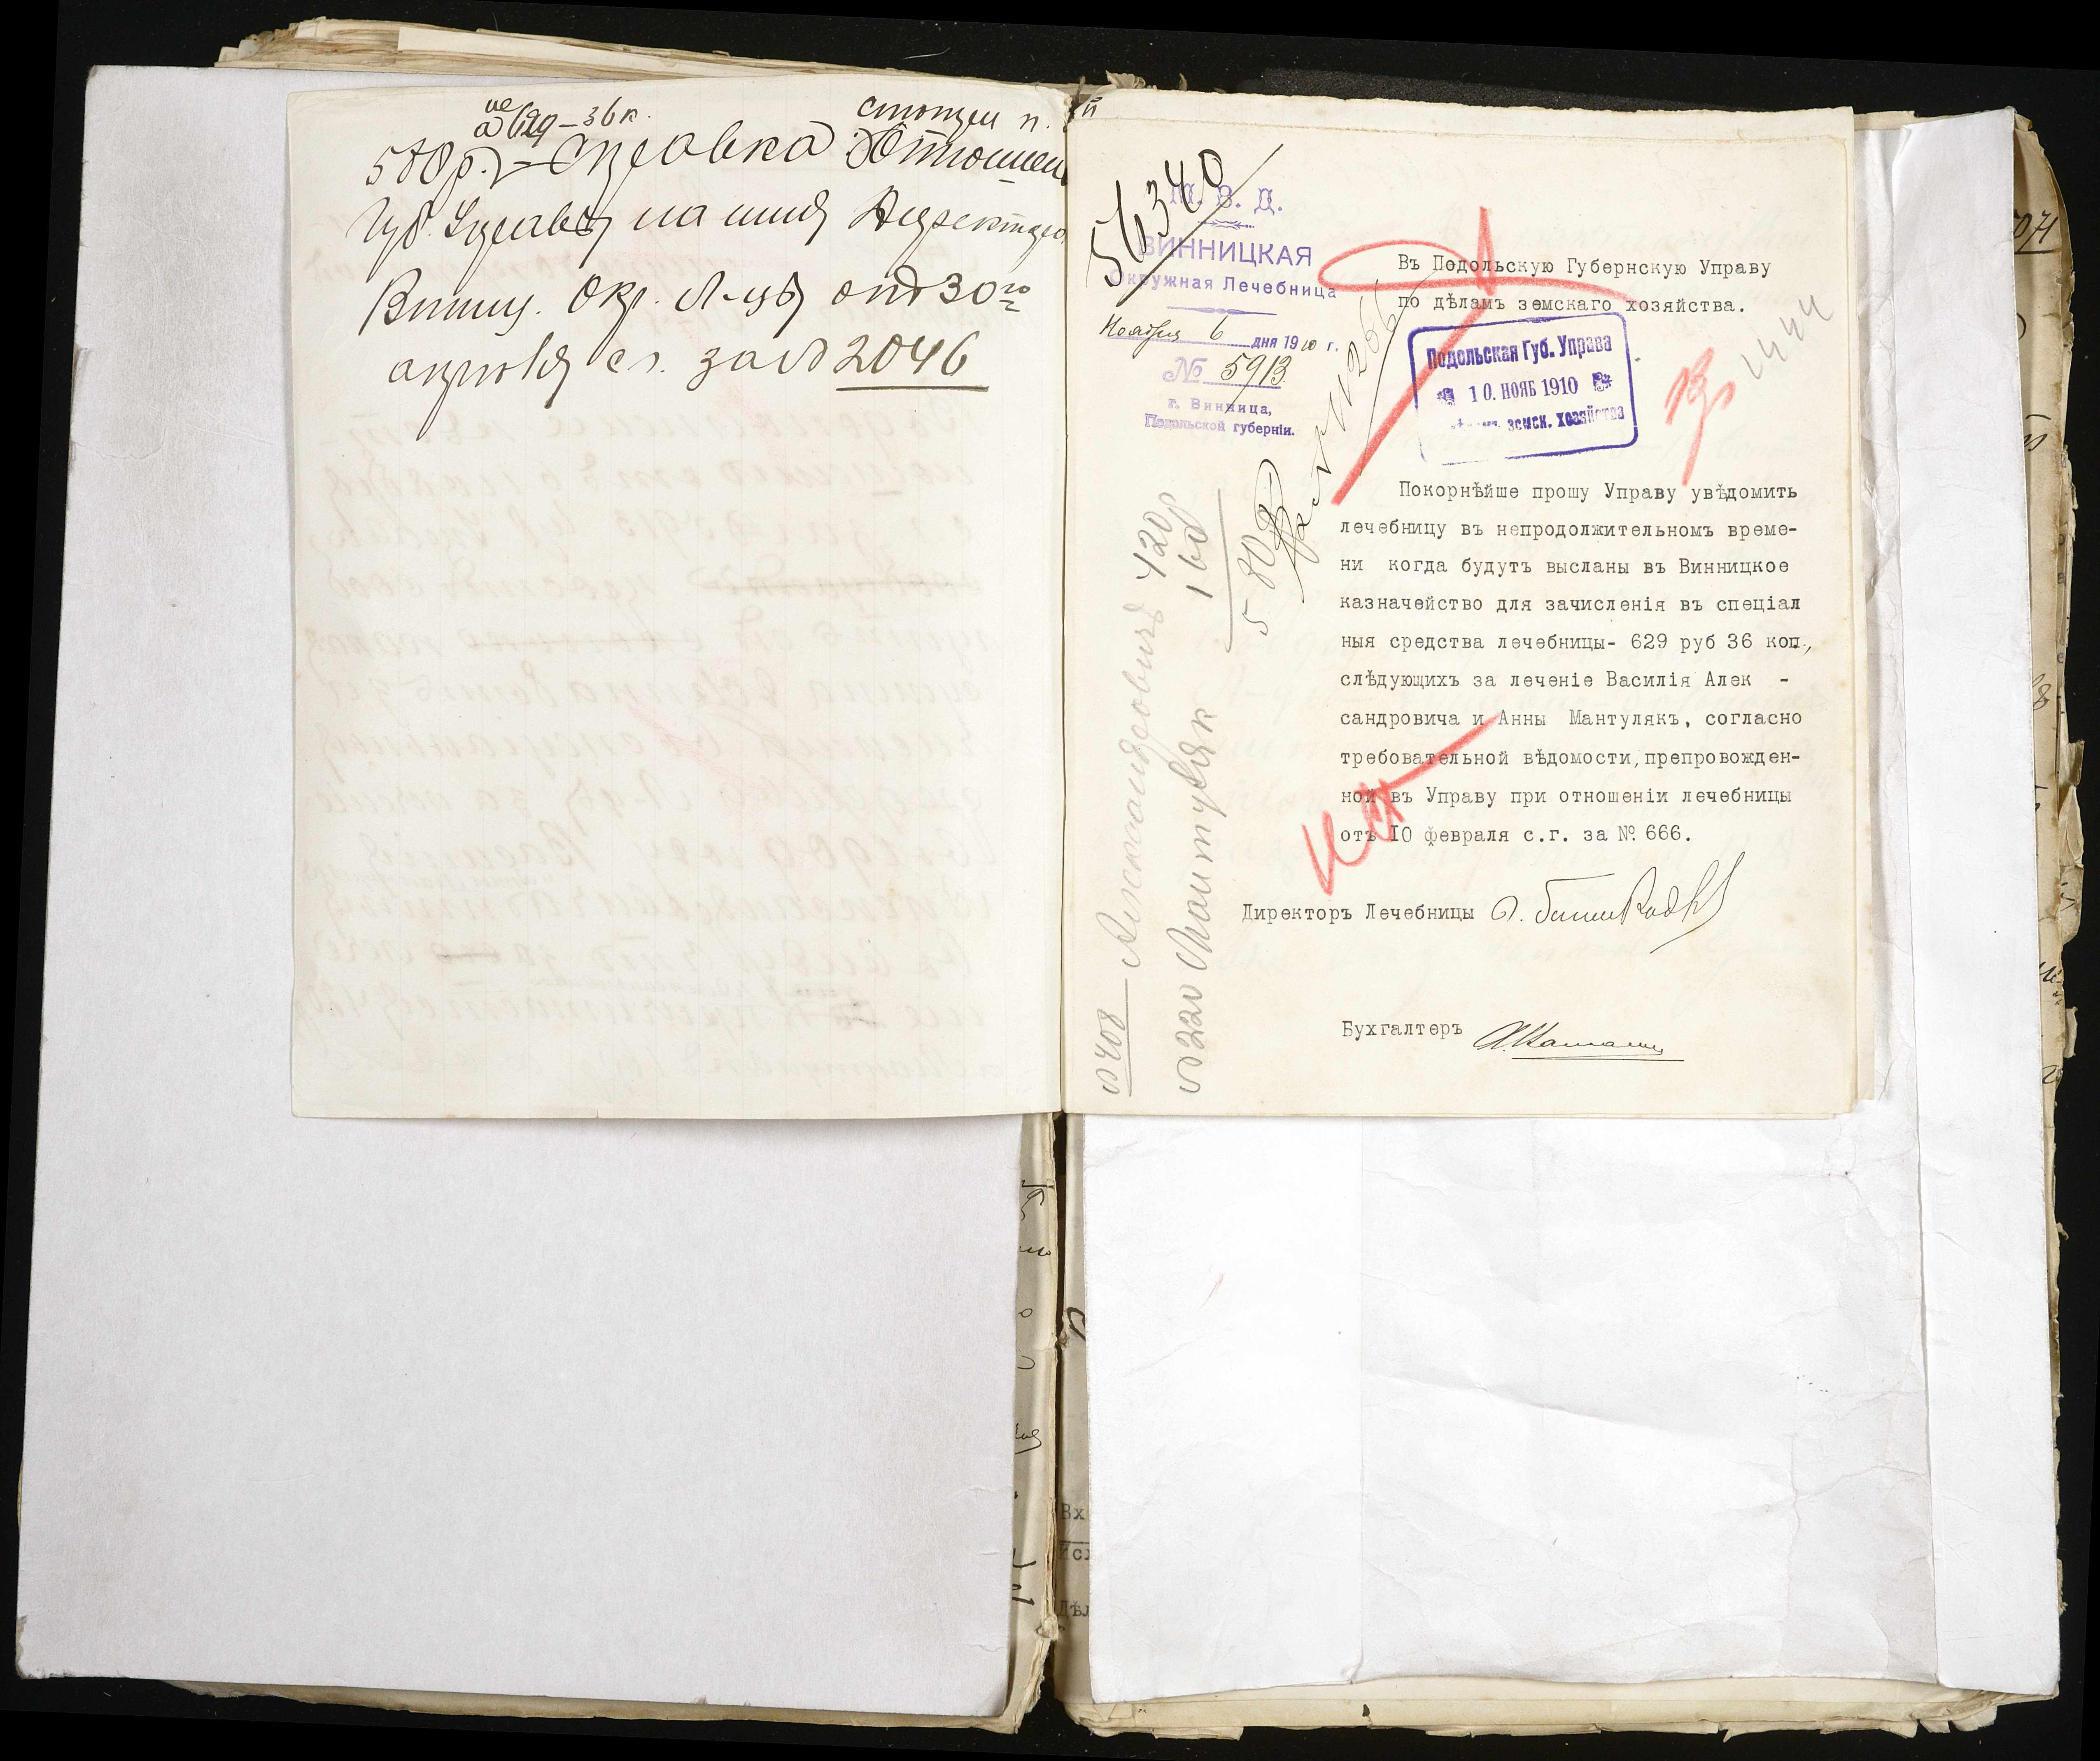 а не 629 – 36 к.
580 р. – Справка Отношен
Губ. Управы на имя Директор
Винниц. Окр. Л-цы отъ 30го
апрѣля с.г. за № 2046
56340
М. В. Д.
ВИННИЦКАЯ
Окружная Лечебница
Ноября 6 дня 1910 г.
№ 5913
г. Винница,
Подольской губерніи.
Въ Подольскую Губернскую Управу
по дѣламъ земскаго хозяйства.
Подольская Губ. Управа
10. НОЯБ 1910
земск. хозяйства
Покорнѣйше прошу Управу увѣдомить
лечебницу въ непродолжительномъ време-
ни когда будутъ высланы въ Винницкое
казначейство для зачисленія въ спеціал
ныя средства лечебницы- 629 руб 36 коп.,
слѣдующихъ за леченіе Василія Алек -
сандровича и Анны Мантулякъ, согласно
требовательной вѣдомости, препровожден-
ной въ Управу при отношеніи лечебницы
отъ IO февраля с.г. за № 666.
Директоръ Лечебницы
Бухгалтеръ
№ 408 Александровичъ 420
№ 220 Мантулякъ 160
580